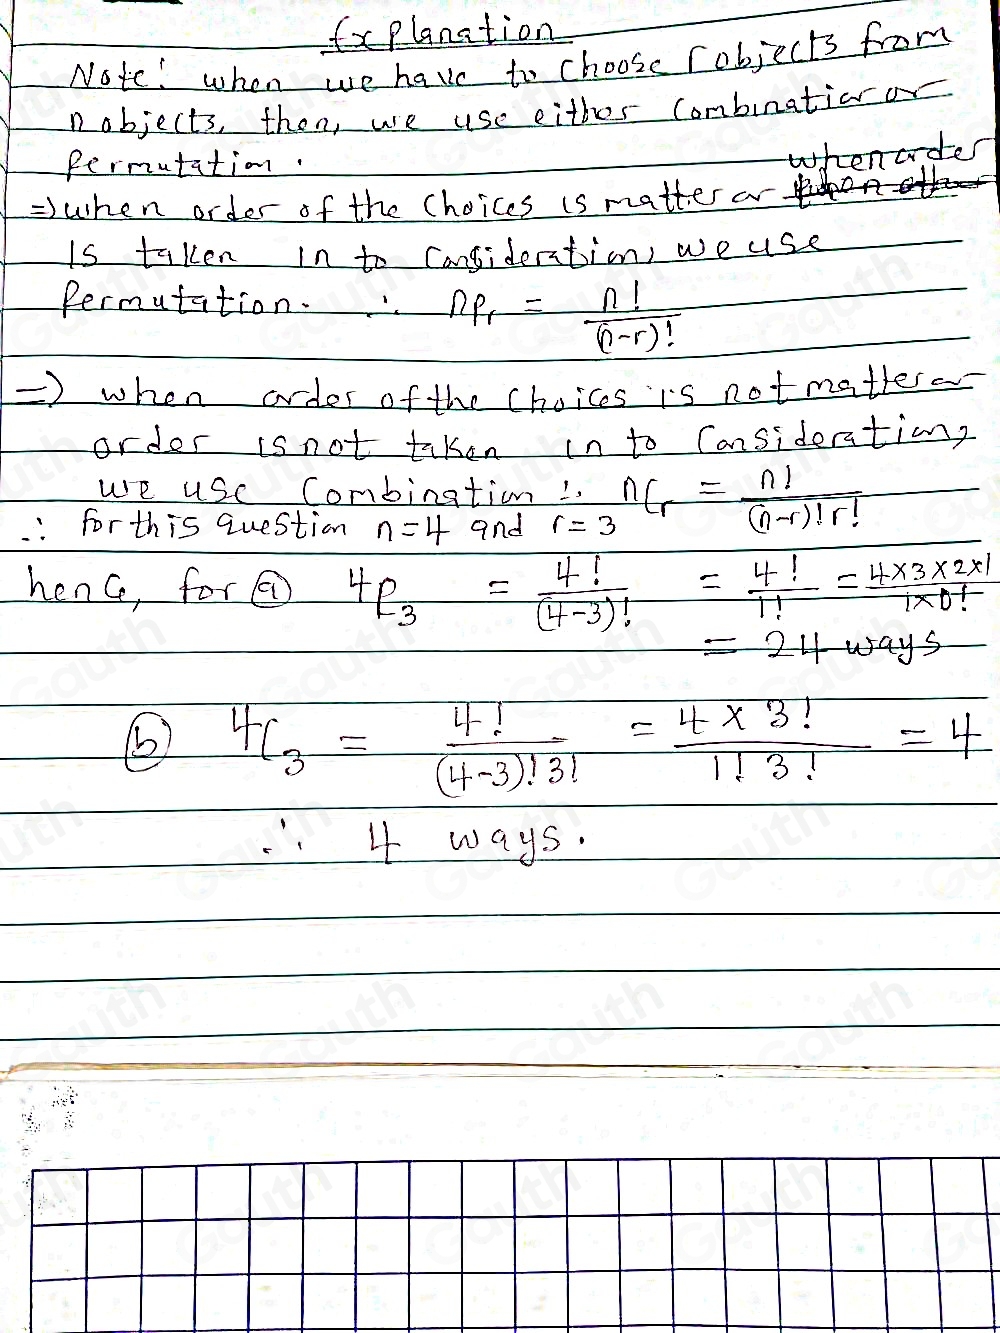 Explanation
Note! when we have to choose r objects from
n objects, then, we use either Combination or
Permutation.
when order
=> when order of the choices is matter or
is taken in to Consideration, we use
Permutation. ∴ nPr = n!/(n-r)!
=> when order of the choices is not matter or
order is not taken in to Consideration,
we use Combination ∴ nCr = n!/(n-r)!r!
∴ for this question n=4 and r=3
hence, for (a) 4P3 = 4!/(4-3)! = 4!/1! = 4×3×2×1/1×0!
= 24 ways
(b) 4C3 = 4!/(4-3)!3! = 4×3!/1!3! = 4
∴ 4 ways.